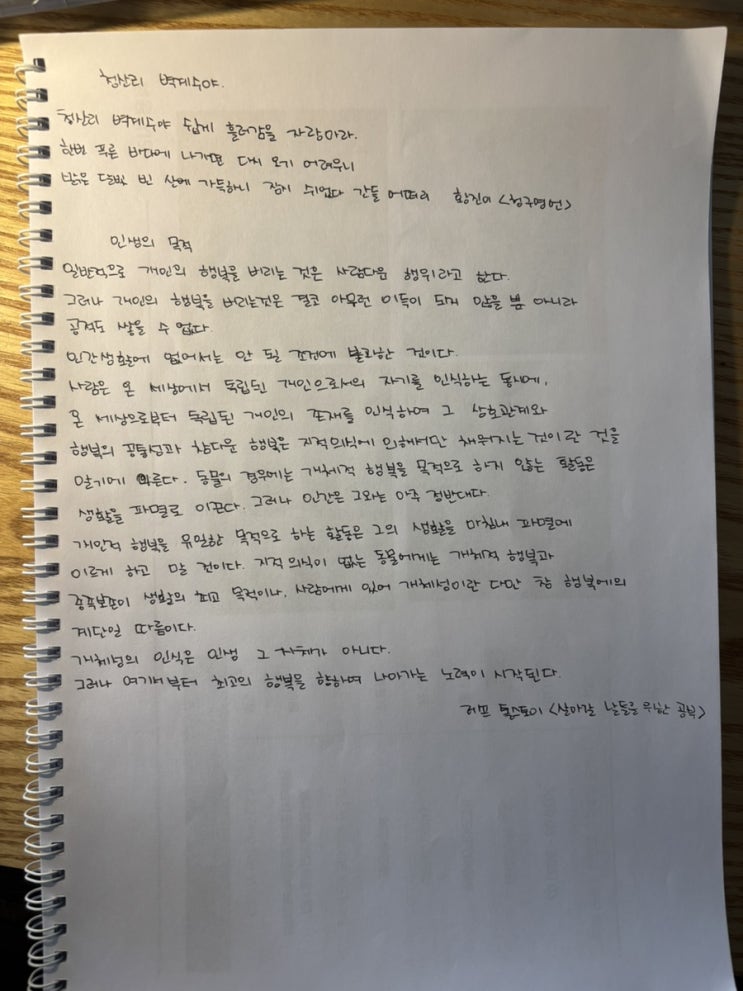 청산리 벽계수야.
청산리 벽계수야 쉽게 흘러감을 자랑마라.
한번 푸른 바다에 나가면 다시 오기 어려우니
밝은 달빛 빈 산에 가득하니 잠시 쉬었다 간들 어떠리 황진이 <청구영언>
인생의 목적
일반적으로 개인의 행복을 버리는 것은 사람다운 행위라고 한다.
그러나 개인의 행복을 버리는것은 결코 아무런 이득이 되지 않을 뿐 아니라
공적도 쌓을 수 없다.
인간생활에 없어서는 안 될 조건에 불과한 것이다.
사람은 온 세상에서 독립된 개인으로서의 자기를 인식하는 동시에,
온 세상으로부터 독립된 개인의 존재를 인식하며 그 상호관계와
행복의 공통성과 참다운 행복은 지적의식에 의해서만 채워지는 것이란 것을
알기에 이른다. 동물의 경우에는 개체적 행복을 목적으로 하지 않는 활동은
생활을 파멸로 이끈다. 그러나 인간은 그와는 아주 정반대다.
개인적 행복을 유일한 목적으로 하는 활동은 그의 생활을 마침내 파멸에
이르게 하고 말 것이다. 지적의식이 없는 동물에게는 개체적 행복과
종족보존이 생활의 최고 목적이나, 사람에게 있어 개체성이란 다만 참 행복에의
계단일 따름이다.
개체성의 인식은 인생 그 자체가 아니다.
그러나 여기서부터 최고의 행복을 향하여 나아가는 노력이 시작된다.
레프 톨스토이 <살아갈 날들을 위한 공부>